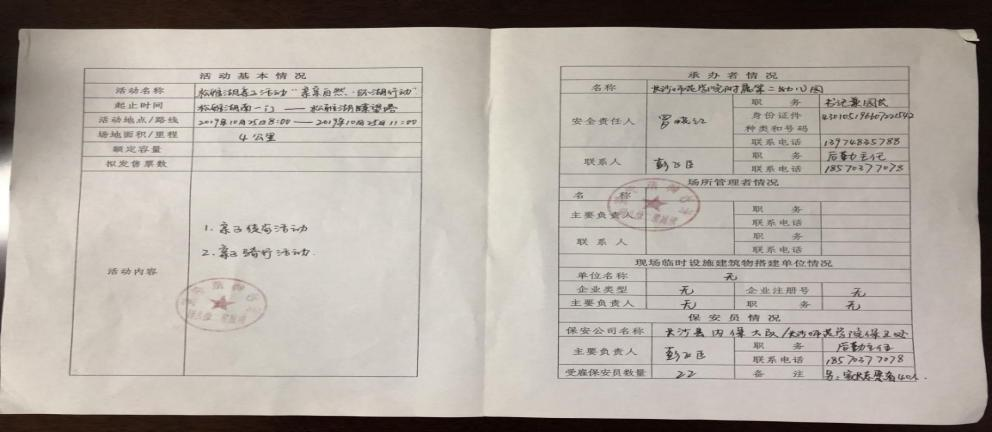 活动基本情况
活动名称 松雅湖亲子活动“亲亲自然·环湖行动”
起止时间 松雅湖南一门——松雅湖瞭望塔
活动地点/路线 2019年10月25日8:00——2019年10月25日11:00
场地面积/里程 4公里
额定容量
拟发售票数
活动内容
1. 亲子绕湖活动
2. 亲子骑行活动.
承办者情况
名称 长沙师范学院附属第二幼儿园
安全责任人
职务 书记兼园长
身份证件种类和号码
联系电话 13974835788
联系人
职务 后勤主任
联系电话 18570377078
场所管理者情况
名称
主要负责人 职务
联系电话
联系人 职务
联系电话
现场临时设施建筑物搭建单位情况
单位名称 无
企业类型 无 企业注册号 无
主要负责人 无 职务 无
保安员情况
保安公司名称 长沙县内保大队/长沙师范学院保卫处
主要负责人 职务 后勤主任
联系电话 18570377078
受雇保安员数量 22 备注 40人.